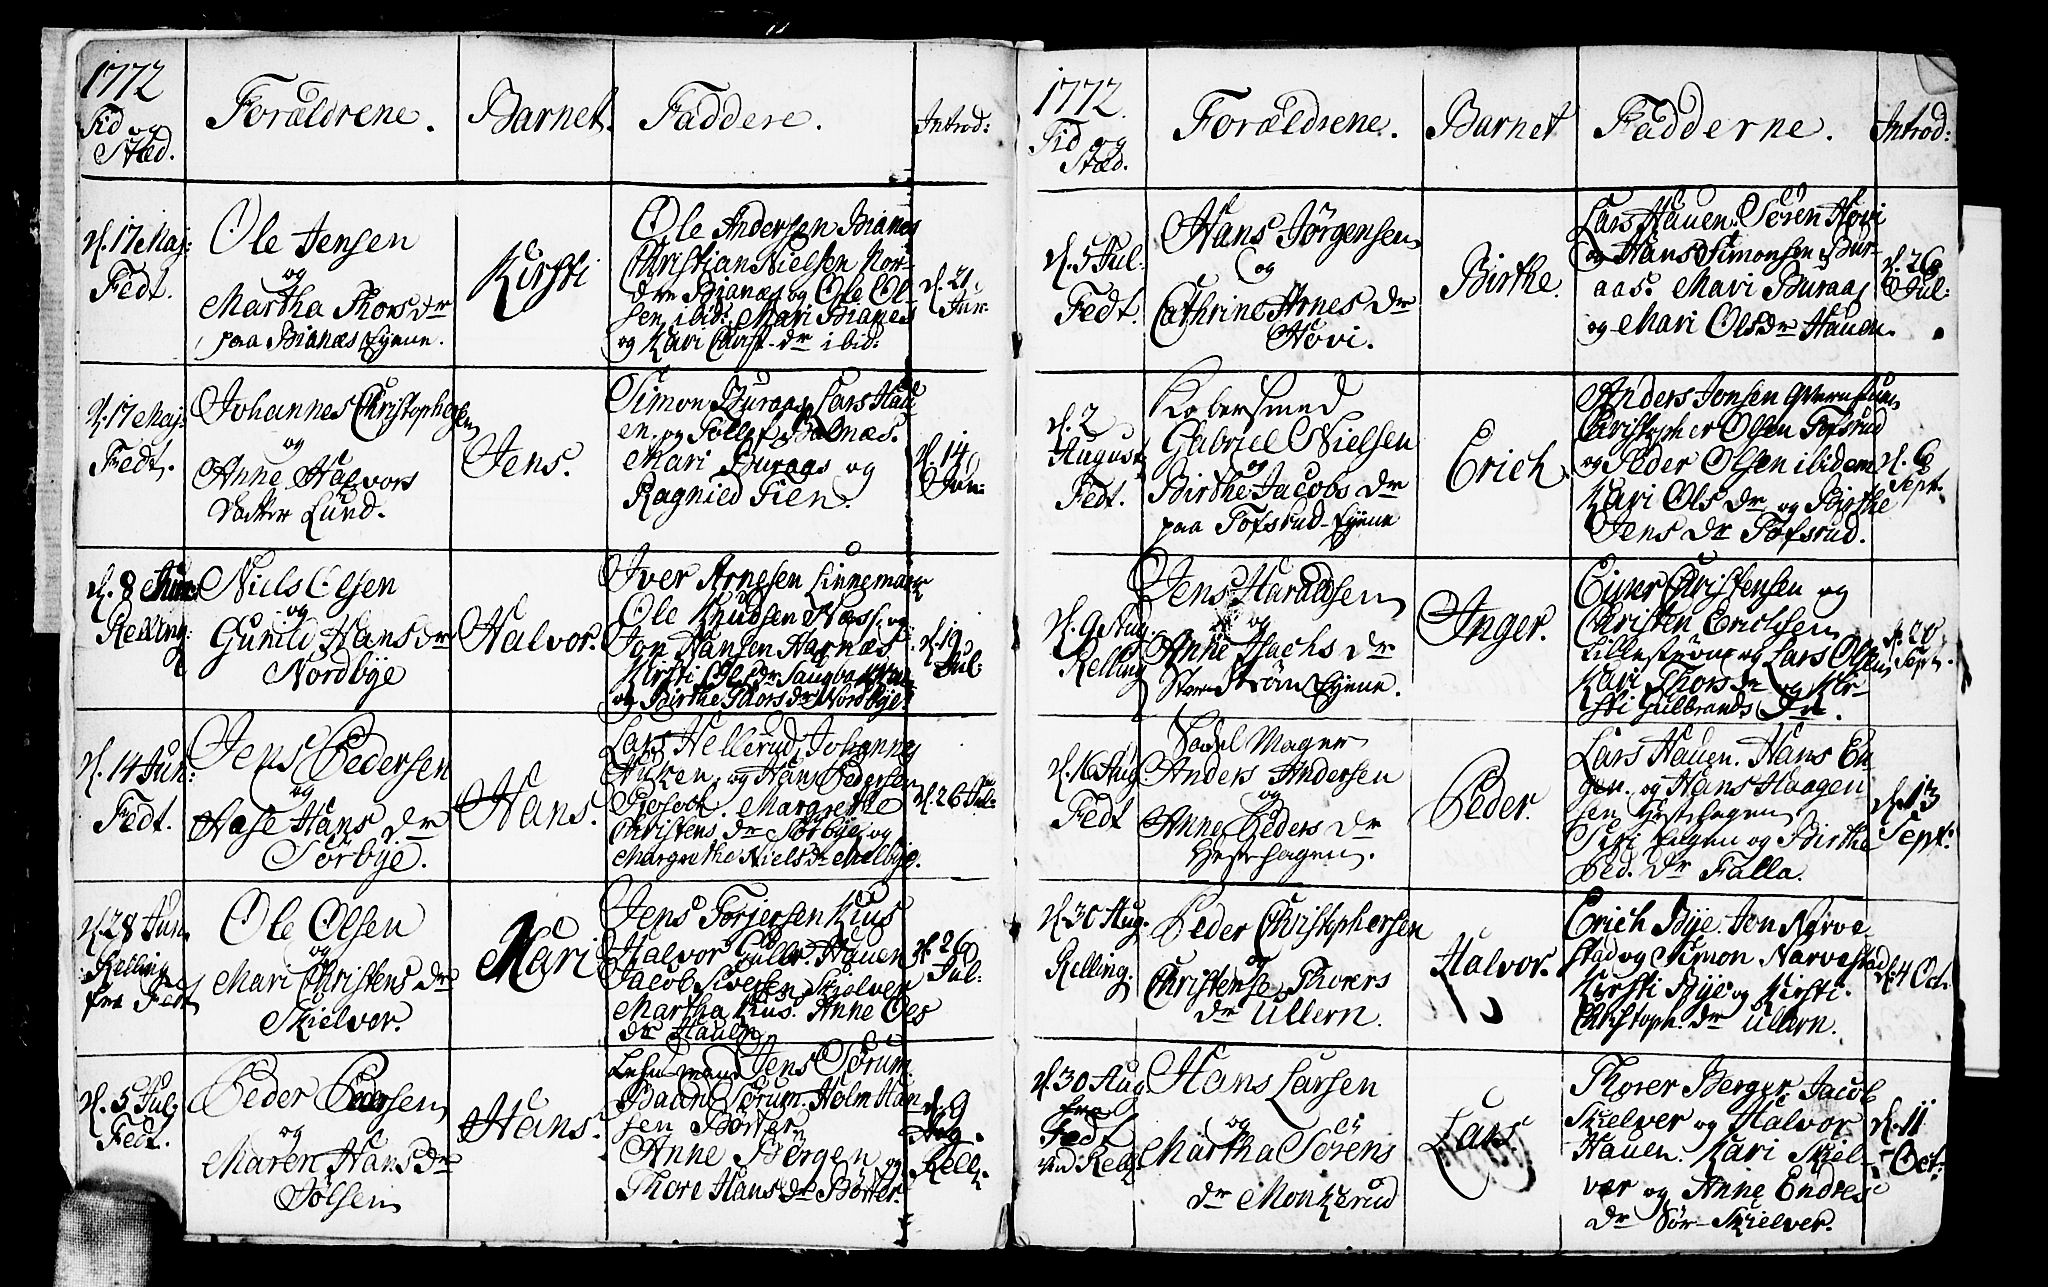 1772
Tid og
Stæd.
Forældrene.
Barnet.
Faddere.
Introd:
d. 17 Maj:
Fedt.
Ole Jensen
og
Martha Thorsdr
paa Bianæs Eyene.
Kirsti
Ole Andersen Bianes
Christian Nielsen Nor-
dre Bianæs og Ole Ol-
sen ibid: Mari Bianes
og Kari Christ-dr ibid:
d. 21
Jun:
d. 17 Maj:
Fedt.
Johannes Christophersen
og
Anne Halvors
Datter Lund.
Jens.
Simon Buraas, Lars Hau-
en og Tollef Balnæs.
Mari Buraas og
Ragnied Fien.
d. 14
Jun:
d. 8 Jun:
Relling:
Niels Olsen
og
Gunild Hansdr
Nordbye
Halvor.
Iver Arnesen Linnemark
Ole Knudsen Næss og
Jon Hansen Harnæs
Kirsti Olsdr
og Birthe Thorsdr Nordbye.
d. 19
Jul:
d. 14 Jun:
Fedt.
Jens Pedersen
og
Aase Hans dr
Sørbye.
Hans.
Lars Hellerud, Johannes
Huken, og Hans Pedersen
Margrethe
Christens dr Sørbye og
Margrethe Niels dr Melbye.
d. 26 Jul:
d. 28 Jun.
Relling
fra Fedt
Ole Olsen
og
Mari Christens dr
Skielver.
Mari
Jens Torjersen Kius
Halvor Gullr. Hauen
Jacob Iversen Skielver
Martha Kius. Anne Ols
dr Hauen
d. 26
Jul:
d. 5 Jul:
Fedt.
Peder Pedersen
og
Maren Hansdr
Jølsen
Hans.
Lehnsmand Jens Sørum.
Baard Sørum. Holm Han
sen Børter
Anne Børgen og
Thore Hansdr Børter.
d. 9
Aug.
Rell:
1772.
Tid og
Stæd.
Forældrene.
Barnet
Fadderne.
Introd:
d. 5 Jul:
Fedt.
Hans Jörgensen
og
Cathrine Arnes dr
Høvi.
Birthe.
Lars Hauen. Søren Høvi
og Hans Simonsen Bur-
aas. Mari Buraas
og Mari Olsdr Hauen.
d. 26
Jul:
d. 2
August
Fedt.
Kobersmed
Gabriel Nielsen
og
Birthe Jacobs dr
paa Tofsrud-Eyene
Erich.
Anders Jonsen
Christopher Olsen Tofsrud
og Peder Olsen ibidem
Kari Ols dr og Birthe
Jens dr Tofsrud.
d. 6
Sept.
d. 9 Aug:
Relling
Jens Haraldsen
og
Anne Isachs dr
Storstrøm Eyene.
Inger.
Christensen og
Christen Erichsen
Lillestrøm og Lars Olsen
Kari Thors dr og Kir-
sti Gulbrands dr.
d. 20
Sept.
d. 16 Aug
Fedt
Sadelmager
Anders Andersen
og
Anne Peders dr
Hestehagen.
Peder.
Lars Hauen. Hans En-
gen. og Hans Haagen
sen Hestehagen
Siri Engen og Birthe
Ped. dr Falla.
d. 13
Sept:
d. 30 Aug:
Relling.
Peder Christophersen
og
Christense Thorers
dr Ullern.
Halvor.
Erich Bye. Jon Narve
stad og Simon Narvestad
Kirsti Bye og Kirsti
Christoph. dr Ullern.
d. 4 Oct.
d. 30 Aug
Fedt
ved Rell:
Hans Larsen
og
Martha Sörens
dr Monkerud
Lars.
Thorer Berger, Jacob
Skielver og Halvor
Hauen. Kari Skiel-
ver og Anne Endres
dr Sør-Skielver.
d. 11
Oct: